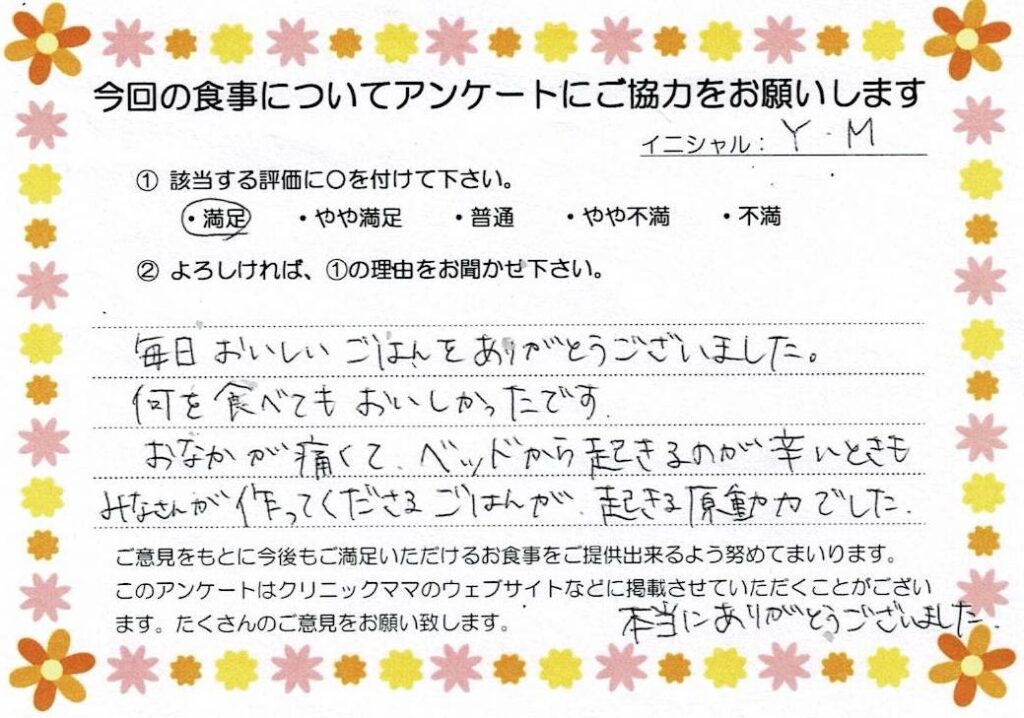 今回の食事についてアンケートにご協力をお願いします
イニシャル： Y・M
① 該当する評価に〇を付けて下さい。
・満足 ・やや満足 ・普通 ・やや不満 ・不満
② よろしければ、①の理由をお聞かせ下さい。
毎日 おいしい ごはんを ありがとうございました。
何を食べても おいしかったです.
おなかが痛くて、ベッドから起きるのが辛いときも
みなさんが作ってくださるごはんが、起きる原動力でした.
ご意見をもとに今後もご満足いただけるお食事をご提供出来るよう努めてまいります。
このアンケートはクリニックママのウェブサイトなどに掲載させていただくことがござい
ます。たくさんのご意見をお願い致します。
本当にありがとうございました.